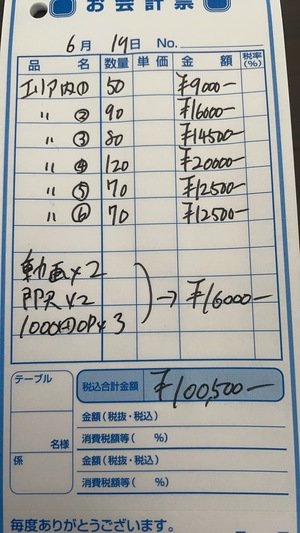 お会計票
6月 19日 No.
品名 数量 単価 金額 税率(%)
エリア内① 50 ¥9000-
〃 ② 90 ¥16000-
〃 ③ 80 ¥14500-
〃 ④ 120 ¥20000-
〃 ⑤ 70 ¥12500-
〃 ⑥ 70 ¥12500-
動画×2
即尺×2 → ¥16000-
1000円OP×3
テーブル 税込合計金額 ¥100,500-
金額(税抜・税込)
名様 消費税額等( %)
係 金額(税抜・税込)
消費税額等( %)
毎度ありがとうございます。